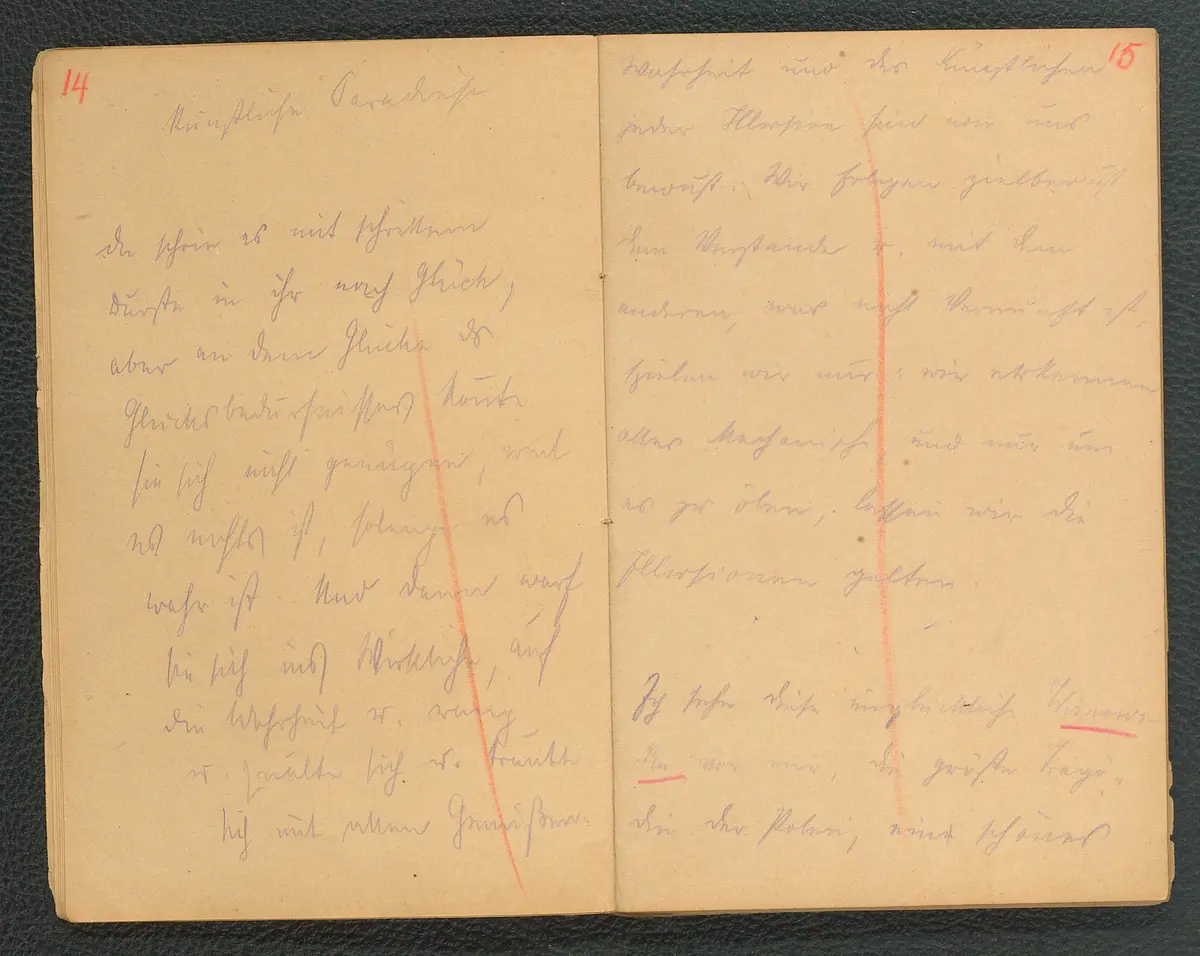 14
Künstliche Paradiese
da schrie es mit schrillem
Durste in ihr nach Glück,
aber an dem Glücke ds
Glücksbedürfnisses konnte
sie sich nicht genügen, weil
es nichts ist, solange es
wahr ist. Und dann warf
sie sich ins Wirkliche, auf
die Wahrheit u. rang
u. quälte sich u.
sich mit allen Genüßen.
15
Wahrheit und des Künstlichen
jeder Illusion sind wir uns
bewußt. Wir folgen zielbewußt
dem Verstande u. mit dem
anderen, was nicht Vernunft ist,
spielen wir nur: wir erkennen
alles Mechanische und nur um
es zu ölen, lassen wir die
Illusionen gelten.
Ich sehe diese unglückliche
vor mir, die größte Tragö-
din der Polen, eine schönes